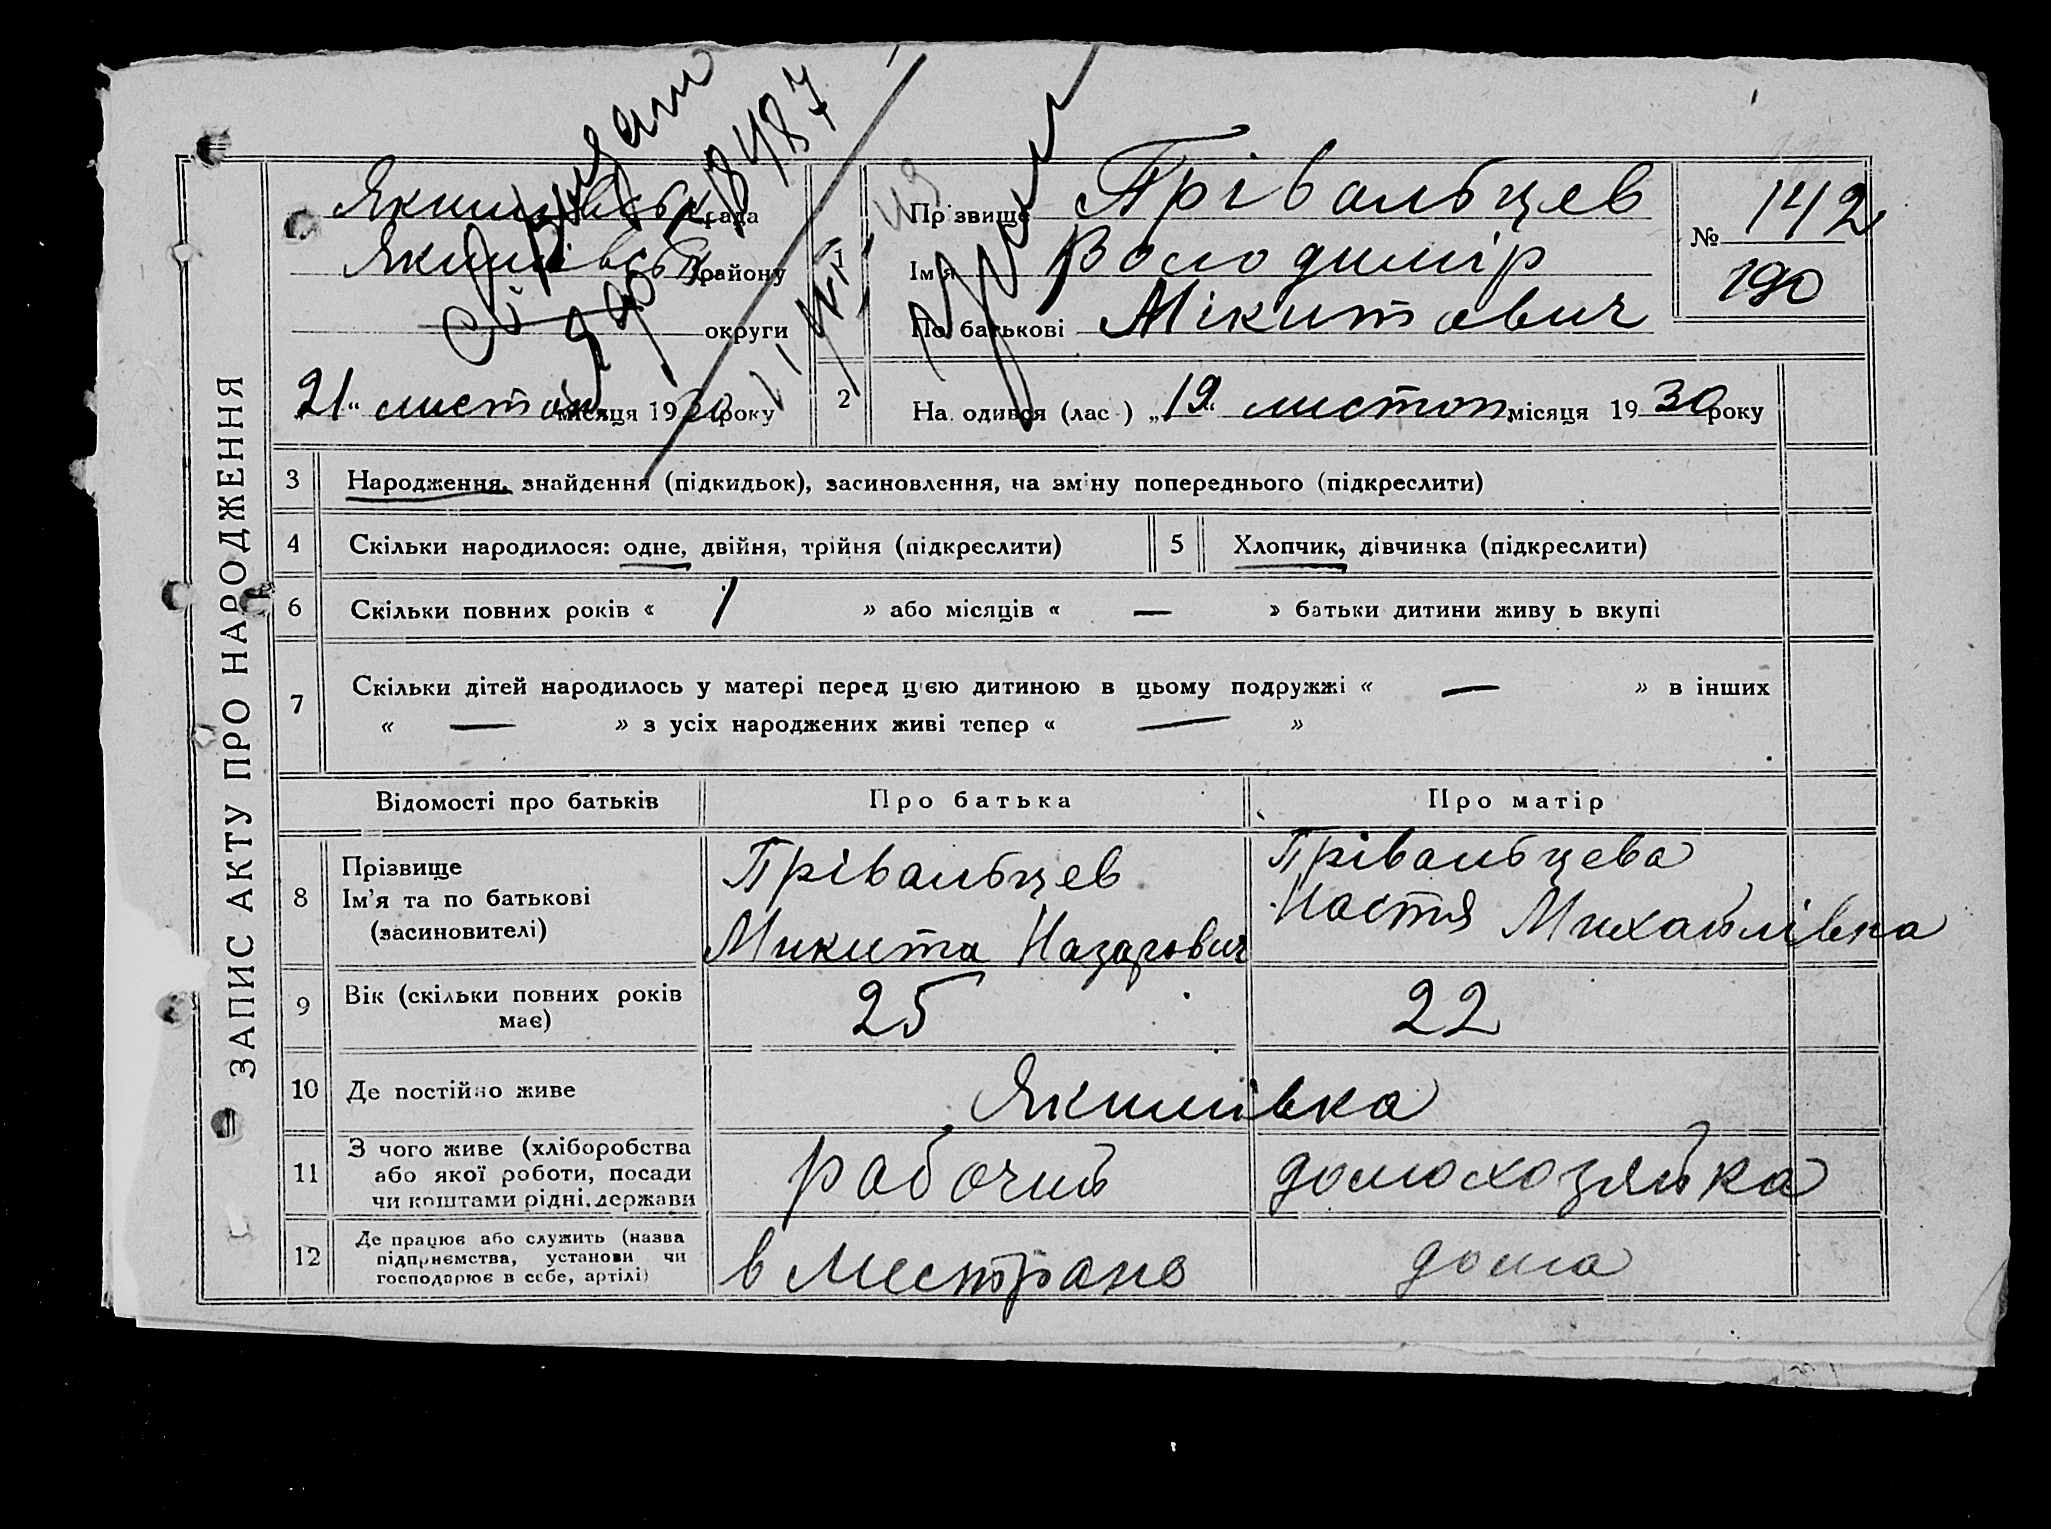 ЗАПИС АКТУ ПРО НАРОДЖЕННЯ
Якимівськ рада
Якимівськ району
округи
21 " листоп місяця 1930 року
1
Прізвище Прівальцев
Ім'я Володимір
По батькові Мікитович
№ 142
190
2
На одився (лас ) „19" листоп місяця 1930 року
3 Народження, знайдення (підкидьок), засиновлення, на зміну попереднього (підкреслити)
4 Скільки народилося: одне, двійня, трійня (підкреслити) 5 Хлопчик, дівчинка (підкреслити)
6 Скільки повних років « 1 » або місяців « — » батьки дитини живу ь вкупі
7 Скільки дітей народилось у матері перед цією дитиною в цьому подружжі « — » в інших
« — » з усіх народжених живі тепер « — »
Відомості про батьків Про батька Про матір
8 Прізвище
Ім'я та по батькові
(засиновителі)
Прівальцев
Микита Назарович
Прівальцева
Настя Михайлівна
9 Вік (скільки повних років
має)
25 22
10 Де постійно живе Якимівка
11 З чого живе (хліборобства
або якої роботи, посади
чи коштами рідні, держави
рабочий домохозяйка
12 Де працює або служить (назва
підприємства, установи чи
господарює в себе, артілі)
в дома